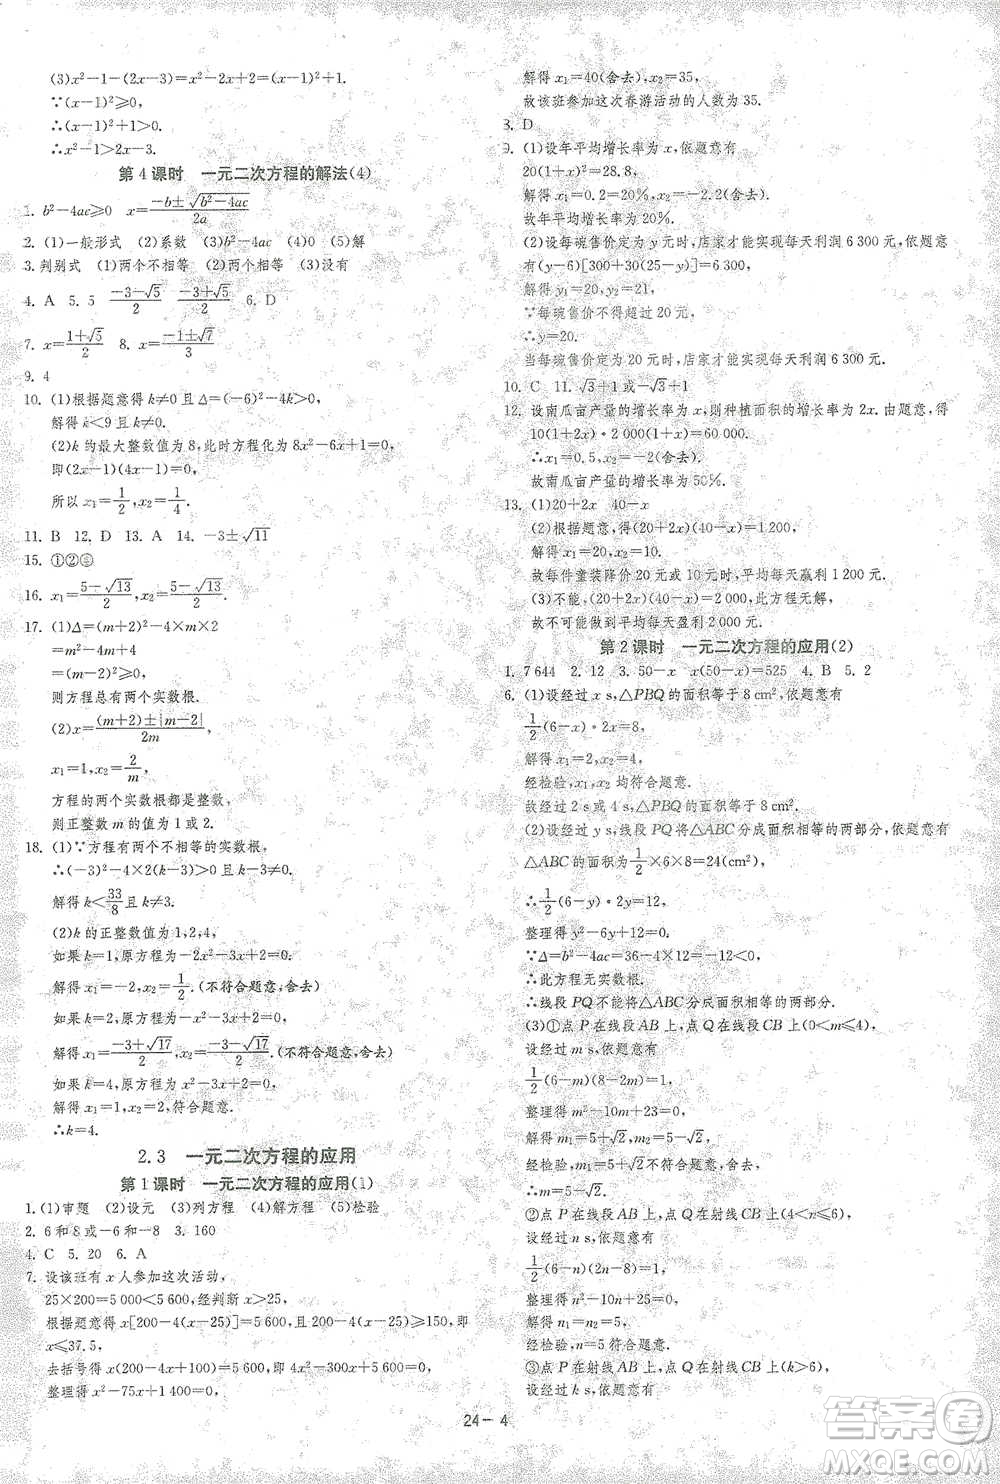 (3)x²−1−(2x−3)=x²−2x+2=(x−1)²+1.
∵(x−1)²⩾0,
∴(x−1)²+1>0.
∴x²−1>2x−3.
第4课时 一元二次方程的解法(4)
1. b²−4ac⩾0 x=\frac{−b±\sqrt{b²−4ac}}{2a}
2. (1)一般形式 (2)系数 (3)b²−4ac (4)0 (5)解
3. 判别式 (1)两个不相等 (2)两个相等 (3)没有
4. A 5. 5 \frac{−3−\sqrt{5}}{2} \frac{−3+\sqrt{5}}{2} 6. D
7. x=\frac{1±\sqrt{5}}{2} 8. x=\frac{−1±\sqrt{7}}{3}
9. 4
10. (1)根据题意得 k≠0 且 Δ=(−6)²−4k>0,
解得 k<9 且 k≠0.
(2)k 的最大整数值为 8,此时方程化为 8x²−6x+1=0,
即(2x−1)(4x−1)=0,
所以 x₁=\frac{1}{2},x₂=\frac{1}{4}.
11. B 12. D 13. A 14. −3±\sqrt{11}
15. ①②
16. x₁=\frac{5−\sqrt{13}}{2},x₂=\frac{5+\sqrt{13}}{2}.
17. (1)Δ=(m+2)²−4×m×2
=m²−4m+4
=(m−2)²⩾0,
则方程总有两个实数根.
(2)x=\frac{(m+2)±|m−2|}{2m},
x₁=1,x₂=\frac{2}{m},
方程的两个实数根都是整数,
则正整数 m 的值为 1 或 2.
18. (1)∵方程有两个不相等的实数根,
∴(−3)²−4×2(k−3)>0,
解得 k<\frac{33}{8} 且 k≠3.
(2)k 的正整数值为 1,2,4,
如果 k=1,原方程为 −2x²−3x+2=0,
解得 x₁=−2,x₂=\frac{1}{2}.(不符合题意,舍去)
如果 k=2,原方程为 −x²−3x+2=0,
解得 x₁=\frac{−3+\sqrt{17}}{2},x₂=\frac{−3−\sqrt{17}}{2}.(不符合题意,舍去)
如果 k=4,原方程为 x²−3x+2=0,
解得 x₁=1,x₂=2,符合题意.
∴k=4.
2.3 一元二次方程的应用
第1课时 一元二次方程的应用(1)
1. (1)审题 (2)设元 (3)列方程 (4)解方程 (5)检验
2. 6和8或−6和−8 3. 160
4. C 5. 20 6. A
7. 设该班有 x 人参加这次活动,
25×200=5 000<5 600,经判断 x>25,
根据题意得 x[200−4(x−25)]=5 600,且 200−4(x−25)⩾150,即
x⩽37.5,
去括号得 x(200−4x+100)=5 600,即 4x²−300x+5 600=0,
整理得 x²−75x+1 400=0,
解得 x₁=40(舍去),x₂=35,
故该班参加这次春游活动的人数为 35.
8. D
9. (1)设年平均增长率为 x,依题意有
20(1+x)²=28.8,
解得 x₁=0.2=20%,x₂=−2.2(舍去).
故年平均增长率为 20%.
(2)设每碗售价定为 y 元时,店家才能实现每天利润 6 300 元,依题意有
(y−6)[300+30(25−y)]=6 300,
解得 y₁=20,y₂=21,
∵每碗售价不超过 20 元,
∴y=20.
当每碗售价定为 20 元时,店家才能实现每天利润 6 300 元.
10. C 11. \sqrt{3}+1或−\sqrt{3}+1
12. 设南瓜亩产量的增长率为 x,则种植面积的增长率为 2x. 由题意,得
10(1+2x)·2 000(1+x)=60 000.
∴x₁=0.5,x₂=−2(舍去).
故南瓜亩产量的增长率为 50%.
13. (1)20+2x 40−x
(2)根据题意,得(20+2x)(40−x)=1 200,
解得 x₁=20,x₂=10,
故每件童装降价 20 元或 10 元,平均每天赢利 1 200 元.
(3)不能,(20+2x)(40−x)=2 000,此方程无解,
故不可能做到平均每天盈利 2 000 元.
第2课时 一元二次方程的应用(2)
1. 7 644 2. 12 3. 50−x x(50−x)=525 4. B 5. 2
6. (1)设经过 x s,△PBQ 的面积等于 8 cm²,依题意有
\frac{1}{2}(6−x)·2x=8,
解得 x₁=2,x₂=4,
经检验,x₁,x₂ 均符合题意.
故经过 2 s 或 4 s,△PBQ 的面积等于 8 cm².
(2)设经过 y s,线段 PQ 将△ABC 分成面积相等的两部分,依题意有
△ABC 的面积为\frac{1}{2}×6×8=24(cm²),
∴\frac{1}{2}(6−y)·2y=12,
整理得 y²−6y+12=0.
∵Δ=b²−4ac=36−4×12=−12<0,
∴此方程无实数根.
∴线段 PQ 不能将△ABC 分成面积相等的两部分.
(3)①点 P 在线段 AB 上,点 Q 在线段 CB 上(0<m⩽4),
设经过 m s,依题意有
\frac{1}{2}(6−m)(8−2m)=1,
整理得 m²−10m+23=0,
解得 m₁=5+\sqrt{2},m₂=5−\sqrt{2},
经检验,m₁=5+\sqrt{2}不符合题意,舍去,
∴m=5−\sqrt{2};
②点 P 在线段 AB 上,点 Q 在射线 CB 上(4<n⩽6),
设经过 n s,依题意有
\frac{1}{2}(6−n)(2n−8)=1,
整理得 n²−10n+25=0,
解得 n₁=n₂=5,
经检验,n=5符合题意.
③点 P 在射线 AB 上,点 Q 在射线 CB 上(k>6),
设经过 k s,依题意有
24−4
答案圈
MXQE.COM